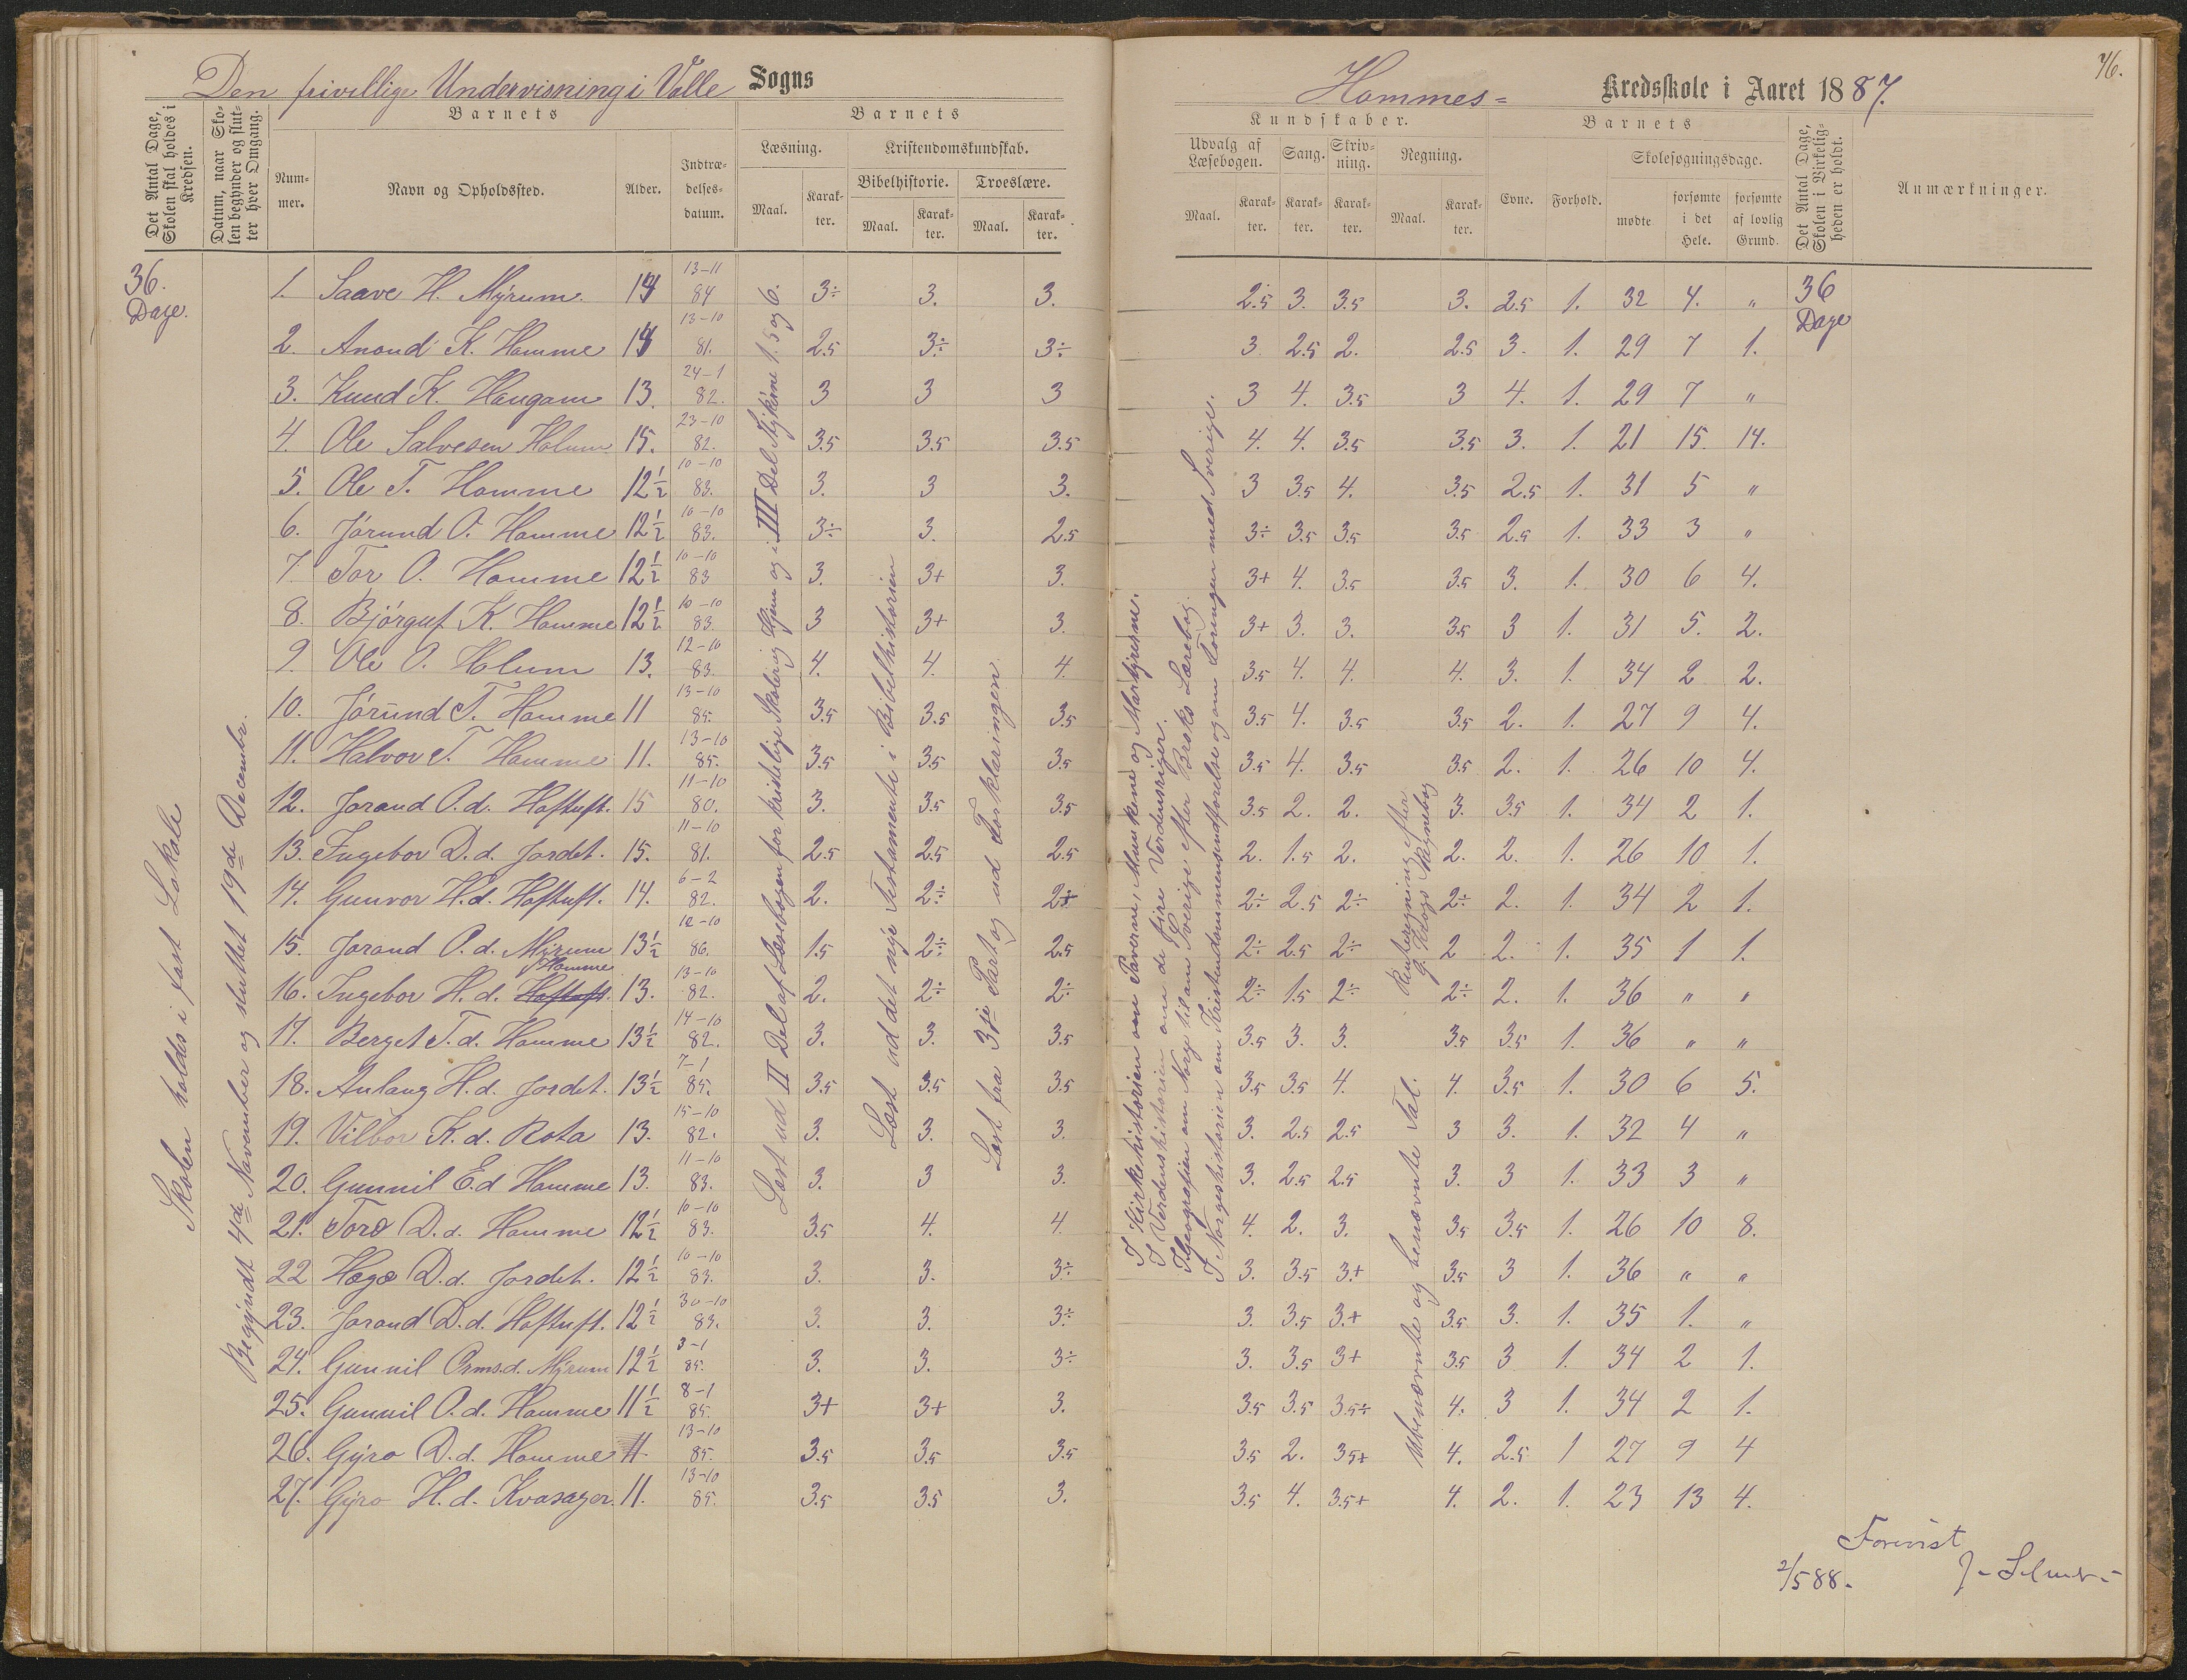 Den frivillige Undervisning i Valle Sogns
Hommes= Kredsskole i Aaret 1887.
76.
Det Antal Dage, Skolen skal holdes i Kredsen.
Datum, naar Skolen begynder og slutter hver Omgang.
Barnets
Nummer.
Navn og Opholdssted.
Alder.
Indtrædelsesdatum.
Barnets
Læsning.
Maal.
Karakter.
Kristendomskundskab.
Bibelhistorie.
Maal.
Karakter.
Troeslære.
Maal.
Karakter.
Kundskaber.
Udvalg af Læsebogen.
Maal.
Karakter.
Sang.
Karakter.
Skrivning.
Karakter.
Regning.
Maal.
Karakter.
Barnets
Evne.
Forhold.
Skolesøgningsdage.
mødte
forsømte i det Hele.
forsømte af lovlig Grund.
Det Antal Dage, Skolen i Virkeligheden er holdt.
Anmærkninger.
36. Dage.
36 Dage
Skolen holdes i fast Lokale
Begyndt 4de November og sluttet 19de Decembr.
Læst ud II Del af Læsebogen for kristelige Skoler og Hjem og i III Del Stykkerne 1. 5 og 6.
Læst ud det nye Testamente i Bibelhistorien
Læst fra 3je Part og ud Forklaringen
I Kirkehistorien om Paverne, Munkene og Martyrerne.
I Verdenshistorien om de fire Verdensriger.
I Geografien om Norge til om Sverige efter Broks Lærebog.
I Norgeshistorien om Kristendommensindførelse og om Foreningen med Sverige.
Ubenævnte og benævnte Tal.
Renteregning efter G. Krogs Regnebog
1. Saave H. Myrum. 14 13-11 84 3÷ 3. 3. 2.5 3. 3.5 3. 2.5 1. 32 4. "
2. Anond K. Homme 14 13-10 81. 2.5 3÷ 3÷ 3 2.5 2. 2.5 3. 1. 29 7 1.
3. Knud K. Haugam 13. 24-1 82. 3 3 3 3 4. 3.5 3 4. 1. 29 7 "
4. Ole Salvesen Holum 15. 23-10 82. 3.5 3.5 3.5 4. 4. 3.5 3.5 3. 1. 21 15. 14.
5. Ole T. Homme 12½ 10-10 83. 3. 3 3. 3 3.5 4. 3.5 2.5 1. 31 5 "
6. Jórund O. Homme 12½ 10-10 83. 3÷ 3. 2.5 3÷ 3.5 3.5 3.5 2.5 1. 33 3 "
7. Tor O. Homme 12½ 10-10 83 3. 3+ 3. 3+ 4. 3.5 3.5 3. 1. 30 6 4.
8. Bjórguf K. Homme 12½ 10-10 83. 3 3+ 3. 3+ 3. 3. 3.5 3 1. 31 5. 2.
9. Ole O. Holum 13. 12-10 83. 4. 4. 4 3.5 4. 4. 4. 3. 1. 34 2 2.
10. Jórund T. Homme 11 13-10 85. 3.5 3.5 3.5 3.5 4. 3.5 3.5 2. 1. 27 9 4.
11. Halvor T. Homme 11. 13-10 85. 3.5 3.5 3.5 3.5 4. 3.5 3.5 2. 1. 26 10 4.
12. Jorand O.d. Hoftuft. 15 11-10 80. 3. 3.5 3.5 3.5 2. 2. 3. 3.5 1. 34 2 1.
13. Ingebor D.d. Jordet. 15. 11-10 81. 2.5 2.5 2.5 2. 1.5 2. 2. 2. 1. 26 10 1.
14. Gunvor H.d. Hoftuft. 14. 6-2 82. 2. 2÷ 2+ 2÷ 2.5 2÷ 2÷ 2. 1. 34 2 1.
15. Jorand O.d. Myrum 13½ 12-10 86. 1.5 2÷ 2.5 2÷ 2.5 2÷ 2 2. 1. 35 1 1.
16. Ingebor H.d. Hoftuft. Homme 13. 13-10 82. 2. 2÷ 2÷ 2÷ 1.5 2÷ 2÷ 2. 1. 36 " "
17. Berget T.d. Homme 13½ 14-10 82. 3. 3. 3.5 3.5 3. 3. 3.5 3.5 1. 36 " "
18. Anlaug H.d. Jordet. 13½ 7-1 85. 3.5 3.5 3.5 3.5 3.5 4. 4. 3.5 1. 30 6 5.
19. Vilbor K.d. Rota 13. 15-10 82. 3. 3. 3. 3. 2.5 2.5 3 3. 1. 32 4 "
20. Gunnil E.d Homme 13. 11-10 83. 3. 3 3. 3. 2.5 2.5 3. 3 1. 33 3 "
21. Toro D.d. Homme 12½ 10-10 83. 3.5 4. 4 4. 2. 3. 3.5 3.5 1. 26 10 8.
22 Hægo D.d. Jordet. 12½ 10-10 83. 3. 3. 3÷ 3. 3.5 3.+ 3.5 3 1. 36 " "
23. Jorand D.d. Hoftuft. 12½ 30-10 83. 3. 3. 3÷ 3. 3.5 3.+ 3.5 3. 1. 35 1. "
24. Gunnil Orms.d. Myrum 12½ 3-1 85. 3. 3. 3÷ 3. 3.5 3+ 3.5 3 1. 34 2 1.
25. Gunnil O.d. Homme 11½ 8-1 85. 3+ 3+ 3. 3.5 3.5 3.5÷ 4. 3 1. 34 2 1.
26. Gyro D.d. Homme 11. 13-10 85. 3.5 3.5 3.5 3.5 2. 3.5+ 4. 2.5 1 27 9 4
27. Gyro H.d. Kvasager. 11. 13-10 85. 3.5 3.5 3. 3.5 4. 3.5+ 4. 2. 1. 23 13 4.
Forevist
2/5 88. J. Selmer.